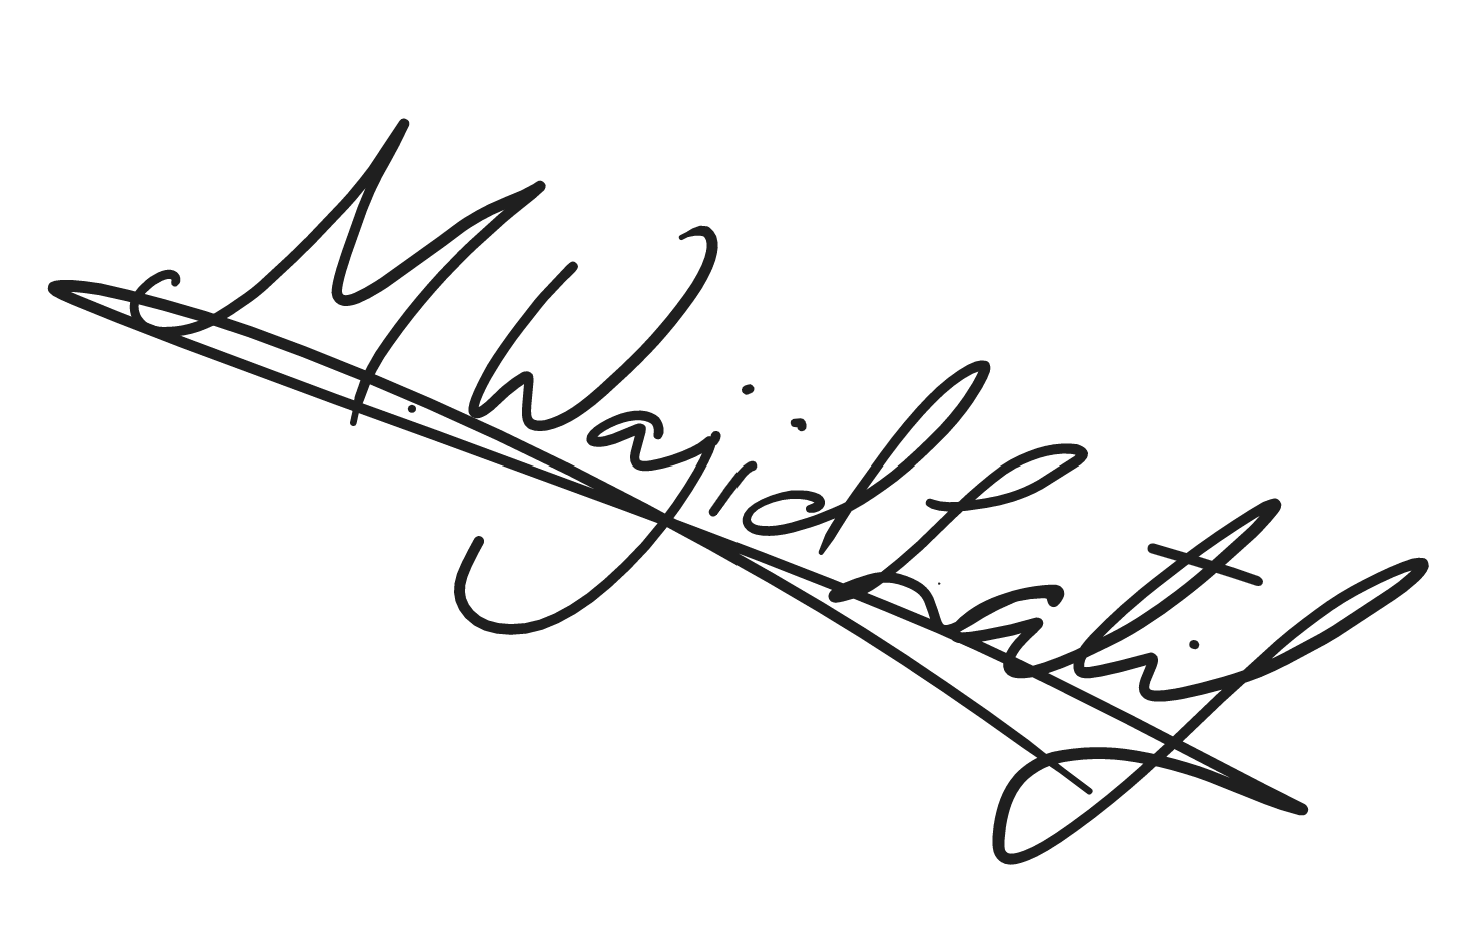 M. Wajid Latif